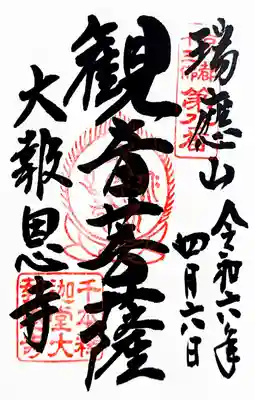 瑞應山
令和六年
四月六日
観音菩薩
大報恩寺
千本釈
迦堂大
報恩寺